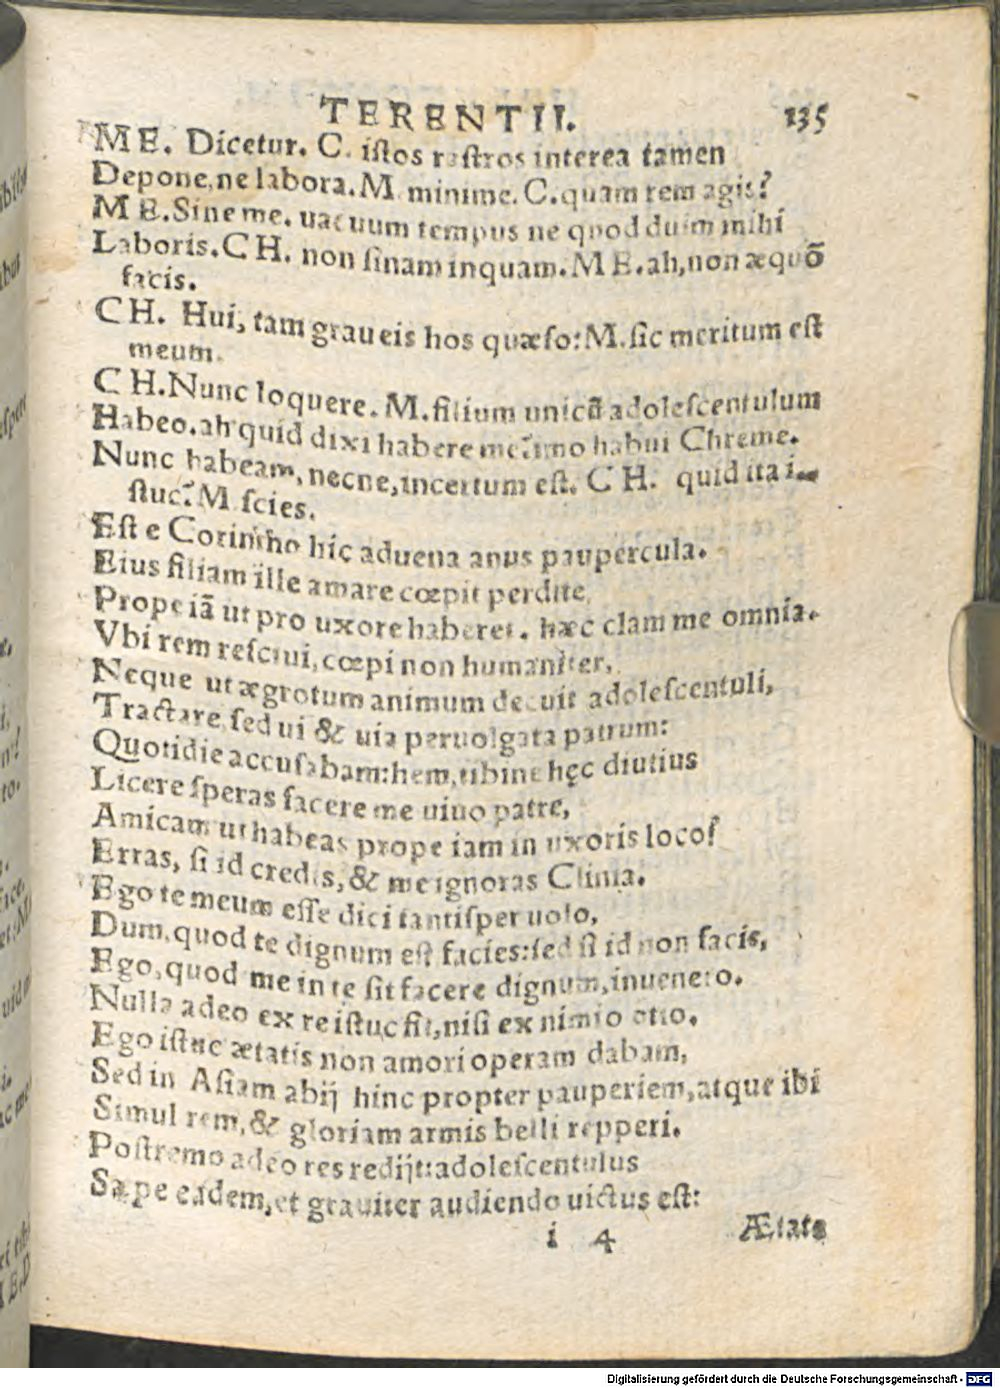 TERENTII. 135
ME. Dicetur. C. istos rastros interea tamen
Depone, ne labora. M. minime. C. quam rem agis?
ME. Sine me. uacuum tempus ne quod duim mihi
Laboris. CH. non sinam inquam. ME. ah, non æquõ
facis.
CH. Hui, tam graueis hos quæso: M. sic meritum est
meum.
CH. Nunc loquere. M. filium unicũ adolescentulum
Habeo. ah quid dixi habere me? imo habui Chreme.
Nunc habeam, necne, incertum est. CH. quid ita i-
stuc? M. scies.
Est e Corintho hic aduena anus paupercula.
Eius filiam ille amare cœpit perdite,
Prope iã ut pro uxore haberet. hæc clam me omnia.
Vbi rem resciui, cœpi non humaniter,
Neque ut ægrotum animum decuit adolescentuli,
Tractare, sed ui & uia peruolgata patrum:
Quotidie accusabam: hem, tibine hęc diutius
Licere speras facere me uiuo patre,
Amicam ut habeas prope iam in uxoris loco?
Erras, si id credis, & me ignoras Clinia.
Ego te meum esse dici tantisper uolo,
Dum, quod te dignum est facies: sed si id non facis,
Ego, quod me in te sit facere dignum, inuenero.
Nulla adeo ex re istuc fit, nisi ex nimio otio.
Ego istuc ætatis non amori operam dabam,
Sed in Asiam abij hinc propter pauperiem, atque ibi
Simul rem, & gloriam armis belli repperi.
Postremo adeo res redijt: adolescentulus
Sæpe eadem, et grauiter audiendo uictus est:
i 4 Ætate
Digitalisierung gefördert durch die Deutsche Forschungsgemeinschaft - DFG